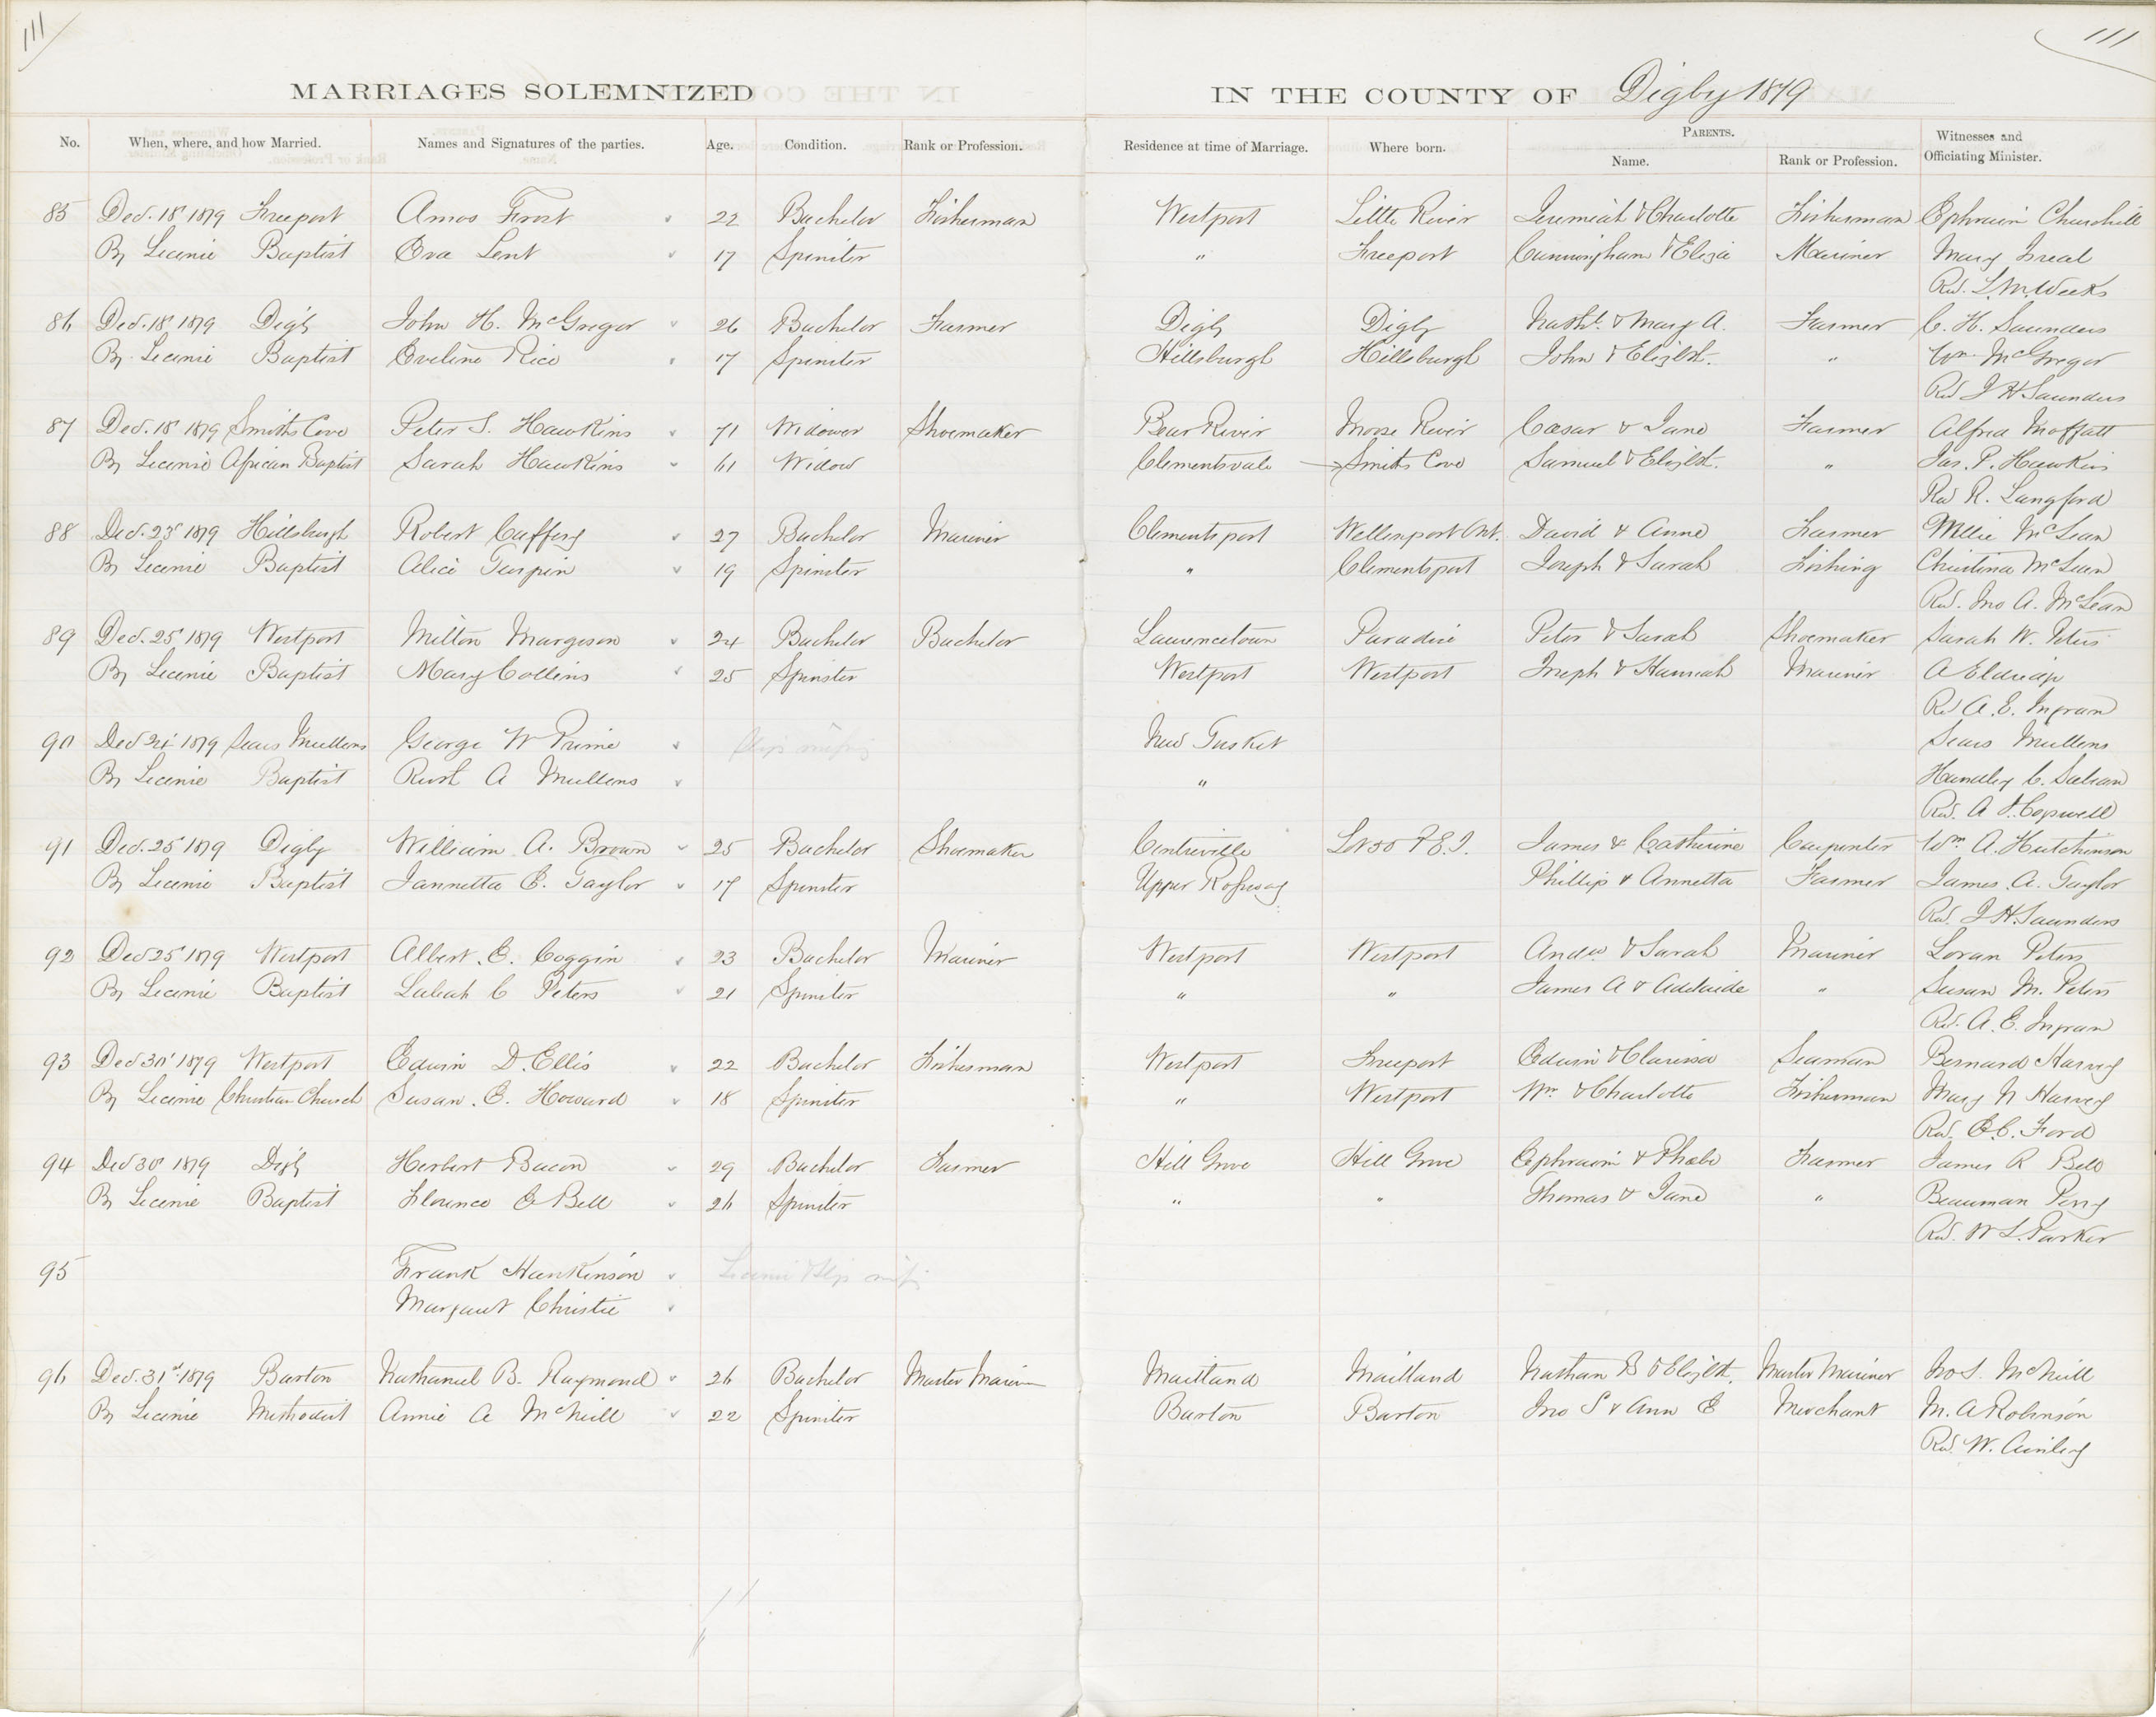 111
111
MARRIAGES SOLEMNIZED IN THE COUNTY OF Digby 1879
No. When, where, and how Married. Names and Signatures of the parties. Age. Condition. Rank or Profession. Residence at time of Marriage. Where born. PARENTS. Name. Rank or Profession. Witnesses and Officiating Minister.
85 Dec. 18 1879 Freeport Amos Frost 22 Bachelor Fisherman Westport Little River Jeremiah & Charlotte Fisherman Ephraim Churchill
By License Baptist Eva Lent 17 Spinster " Freeport Cunningham & Eliza Mariner Mary
Rev. Weeks
86 Dec. 18 1879 Digby John H. McGregor 26 Bachelor Farmer Digby Digby Nathl. & Mary A. Farmer C. H. Saunders
By License Baptist Eveline Rice 17 Spinster Hillsburgh Hillsburgh John & Elizbt. " Wm McGregor
Rev J H Saunders
87 Dec. 18 1879 Smiths Cove Peter S. Hawkins 71 Widower Shoemaker Bear River Moose River Caesar & Jane Farmer Alfred Moffatt
By License African Baptist Sarah Hawkins 61 Widow Clementsvale Smiths Cove Samuel & Elizbt. " Jas. P. Hawkins
Rev R. Langford
88 Dec. 23 1879 Hillsburgh Robert Caffery 27 Bachelor Mariner Clementsport Wellenport Ont. David & Anne Farmer Millie McLean
By License Baptist Alice Turpin 19 Spinster " Clementsport Joseph & Sarah Fishing Christina McLean
Rev. Jno A. McLean
89 Dec. 25 1879 Westport Milton Margeson 24 Bachelor Bachelor Lawrencetown Paradise Peter & Sarah Shoemaker Sarah W. Peters
By License Baptist Mary Collins 25 Spinster Westport Westport Joseph & Hannah Mariner A Eldridge
Rev A. E. Ingram
90 Dec 24 1879 Sears Mullens George W Prime Slip missing New Tusket Sears Mullens
By License Baptist Ruth A Mullens " Handley C. Sabean
Rev. A
91 Dec. 25 1879 Digby William A. Brown 25 Bachelor Shoemaker Centreville Lot 50 P.E.I. James & Catherine Carpenter Wm A. Hutchinson
By License Baptist Jannetta E. Taylor 17 Spinster Upper Rossway Phillip & Annetta Farmer James. A. Taylor
Rev J H. Saunders
92 Dec 25 1879 Westport Albert. E. Coggin 23 Bachelor Mariner Westport Westport Andw & Sarah Mariner Loran Peters
By License Baptist Laleah C Peters 21 Spinster " " James A & Adelaide " Susan M. Peters
Rev. A. E. Ingram
93 Dec 30 1879 Westport Edwin D. Ellis 22 Bachelor Fisherman Westport Freeport Edwin & Clarissa Seaman Bernard Harvey
By License Christian Church Susan. E. Howard 18 Spinster " Westport Wm & Charlotte Fisherman Mary N Harvey
Rev. E. C. Ford
94 Dec 30 1879 Digby Herbert Bacon 29 Bachelor Farmer Hill Grove Hill Grove Ephraim & Phebe Farmer James R Bell
By License Baptist Florence E Bell 26 Spinster " " Thomas & Jane " Beauman Perry
Rev. W L. Parker
95 Frank Hankinson License & Slip
Margaret Christie
96 Dec. 31st 1879 Barton Nathaniel B. Raymond 26 Bachelor Master Mariner Maitland Maitland Nathan B & Elizbt. Master Mariner Jno S. McNeill
By License Methodist Annie A McNeill 22 Spinster Barton Barton Jno S & Ann E Merchant M. A Robinson
Rev. W. Ainley